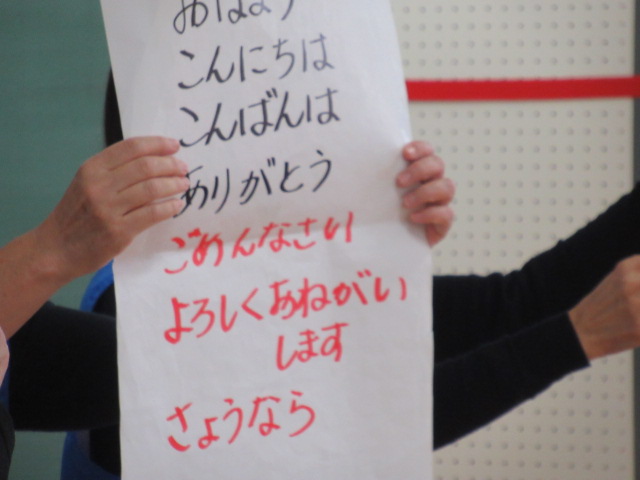 おはよう
こんにちは
こんばんは
ありがとう
ごめんなさい
よろしくおねがい
します
さようなら